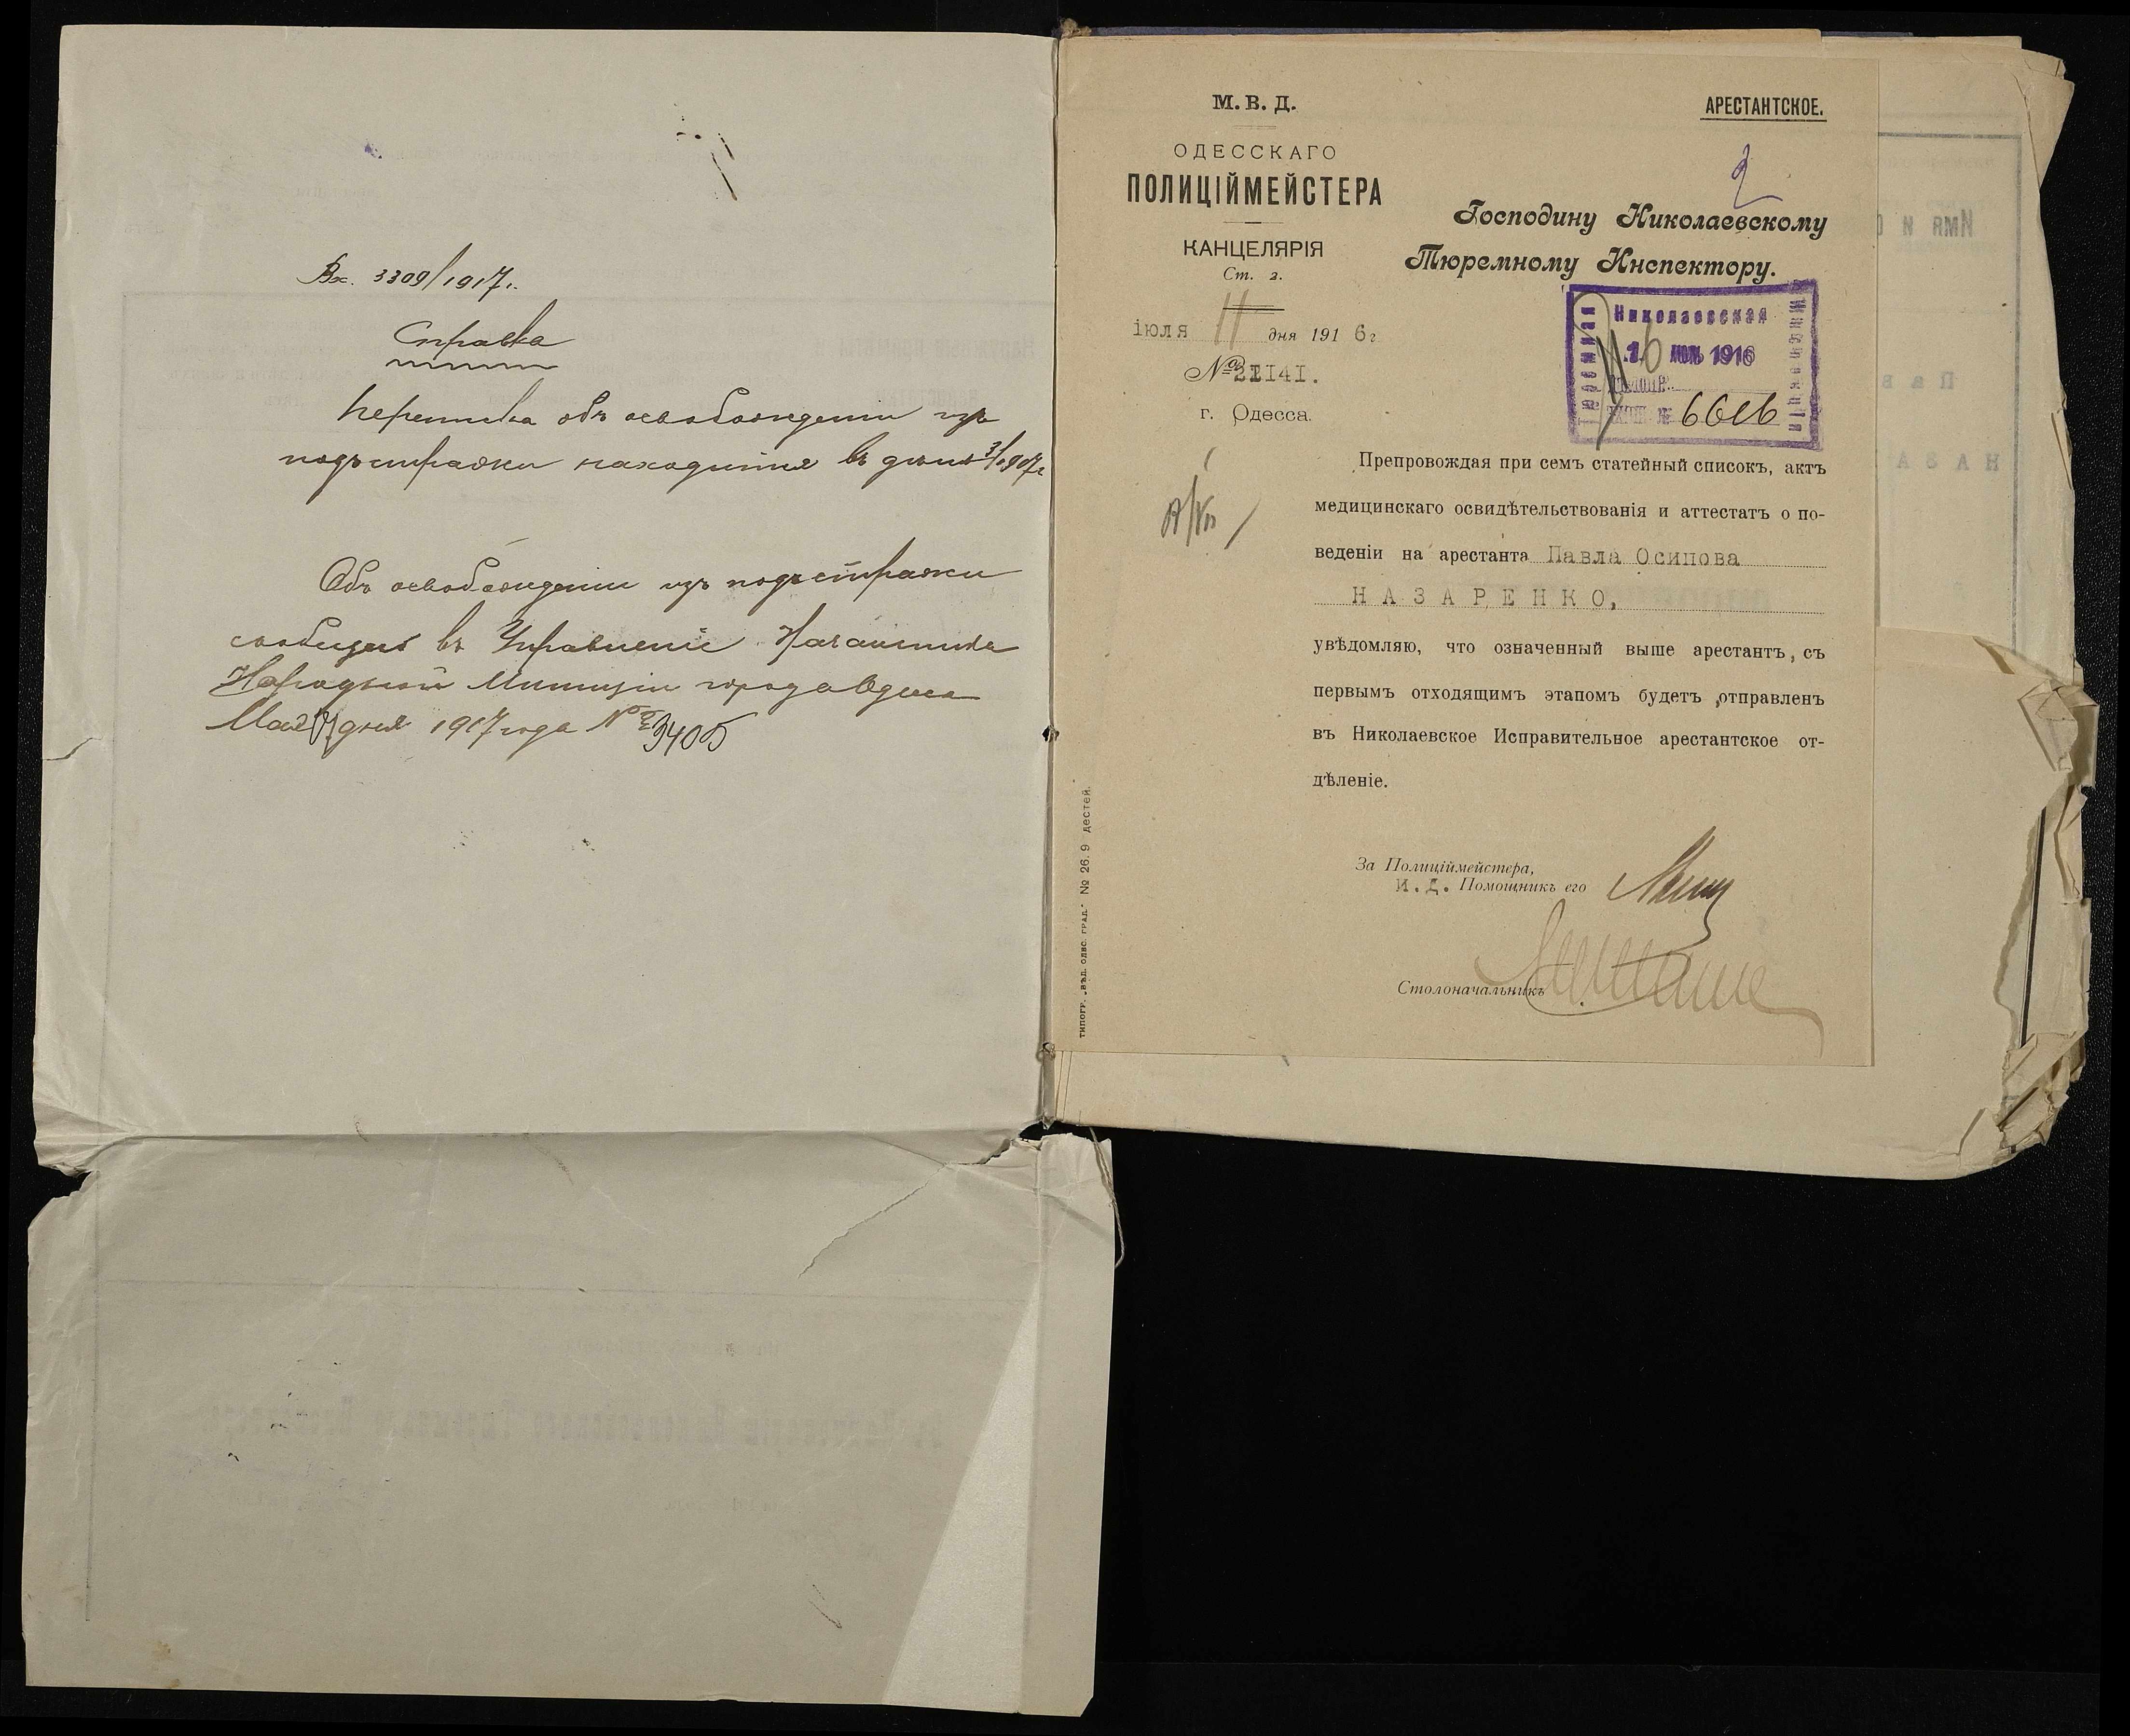 Вх. 3309/1917 г.
Справка
Переписка объ освобожденіи изъ
подъ стражи находится въ дѣлѣ
Объ освобожденіи изъ подъ стражи
сообщено въ Управленіе Начальника
Народной Милиціи города Одессы
Мая дня 1917 года № 9405
М. В. Д.
ОДЕССКАГО
ПОЛИЦІЙМЕЙСТЕРА
КАНЦЕЛЯРІЯ
Ст. 2.
іюля 11 дня 1916 г
№ 21141.
г. Одесса.
АРЕСТАНТСКОЕ.
2
Господину Николаевскому
Тюремному Инспектору.
Николаевская
Тюремная
Инспекція
16 ІЮЛ 1916
Препровождая при семъ статейный списокъ, актъ
медицинскаго освидѣтельствованія и аттестатъ о по-
веденіи на арестанта Павла Осипова
НАЗАРЕНКО,
увѣдомляю, что означенный выше арестантъ, съ
первымъ отходящимъ этапомъ будетъ отправленъ
въ Николаевское Исправительное арестантское от-
дѣленіе.
За Полиціймейстера,
И. Д. Помощникъ его
Столоначальникъ